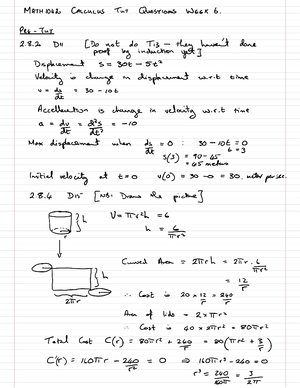 MATH1042 CALCULUS TUT QUESTIONS WEEK 6.
PRE-TUT
2.8.2 D11 [Do not do T13 - they haven't done
proof by induction yet]
Displacement s = 30t - 5t²
Velocity is change in displacement w.r.t time
v = ds/dt = 30 - 10t
Acceleration is change in velocity w.r.t time
a = dv/dt = d²s/dt² = -10
Max displacement when ds/dt = 0 : 30 - 10t = 0
t = 3
s(3) = 90 - 45
= 45 metres
Initial velocity at t = 0 v(0) = 30 - 0 = 30. meter per sec.
2.8.4 D15 [NB: Draw the picture]
h
r
V = πr²h = 6
h = 6/πr²
h
2πr
Curved Area = 2πrh = 2πr. 6/πr²
= 12/r
∴ Cost is 20 x 12/r = 240/r
Area of lids = 2 x πr²
∴ Cost is 40 x 2πr² = 80πr²
Total Cost C(r) = 80πr² + 240/r = 80(πr² + 3/r)
C'(r) = 160πr - 240/r² = 0 ⇒ 160πr³ - 240 = 0
r³ = 240/160π = 3/2π